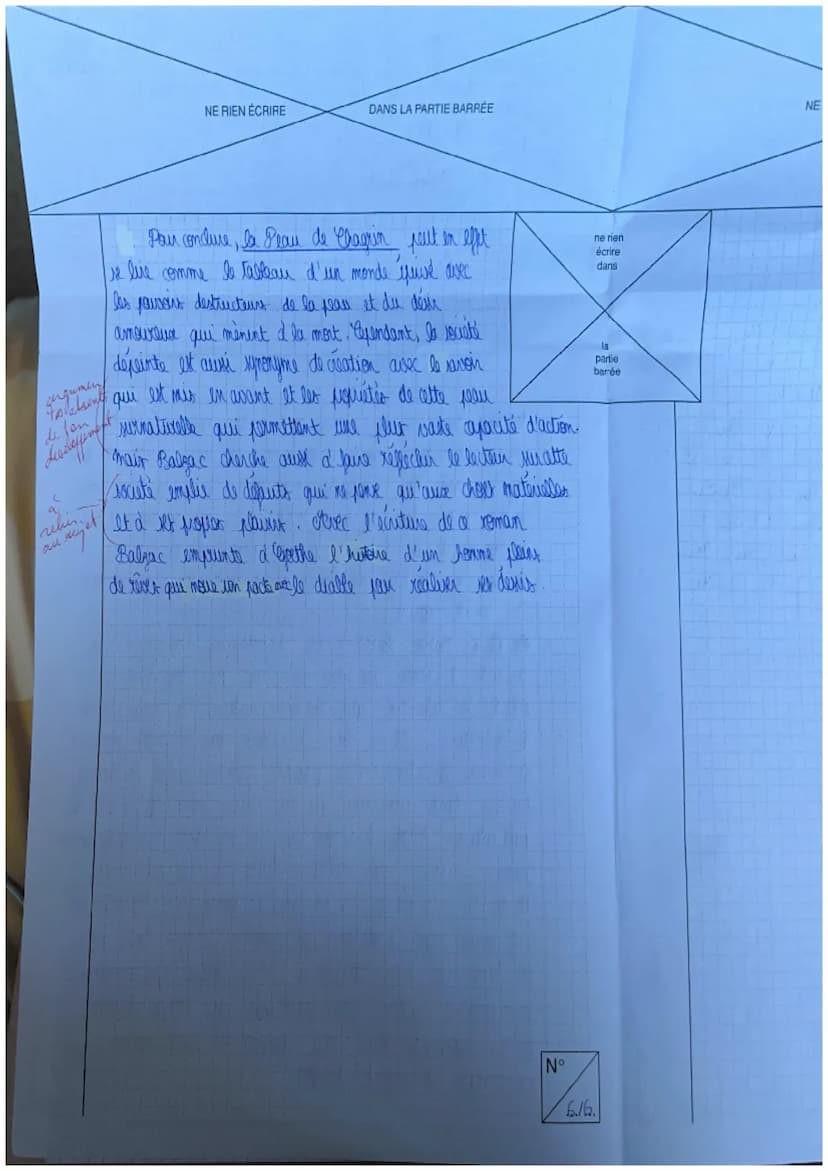 NE RIEN ÉCRIRE DANS LA PARTIE BARRÉE
NE
ne rien
écrire
dans
la
partie
barrée
Pour conclure, la Peau de Chagrin peut en effet
se lire comme le tableau d'un monde épuisé avec
les pouvoirs destructeurs de la peau et du désir
amoureux qui mènent à la mort. Cependant, la société
dépeinte est aussi synonyme de création avec le savoir
qui est mis en avant et les propriétés de cette peau
surnaturelle qui permettent une plus vaste capacité d'action.
mais Balzac cherche aussi à faire réfléchir le lecteur sur cette
société emplie de défauts qui ne pense qu'aux choses matérielles
et à ses propres plaisirs. Avec l'écriture de ce roman
Balzac emprunte à Goethe l'histoire d'un homme pleins
de rêves qui noue un pacte avec le diable pour réaliser ses désirs.
argumen
absent
de ton
développment
à
relier
au sujet
N°
6./6.